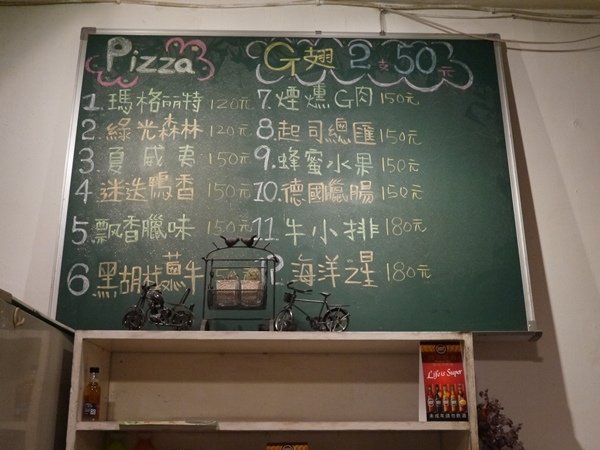 Pizza
G翅 2支50元
1.瑪格丽特 120元
2.綠光森林 120元
3.夏威夷 150元
4.迷迭鴨香 150元
5.飄香臘味 150元
6.黑胡椒蔥牛
7.煙燻G肉 150元
8.起司總匯 150元
9.蜂蜜水果 150元
10.德國臘腸 150元
11.牛小排 180元
海洋之星 180元
Life is Super
未成年請勿飲酒